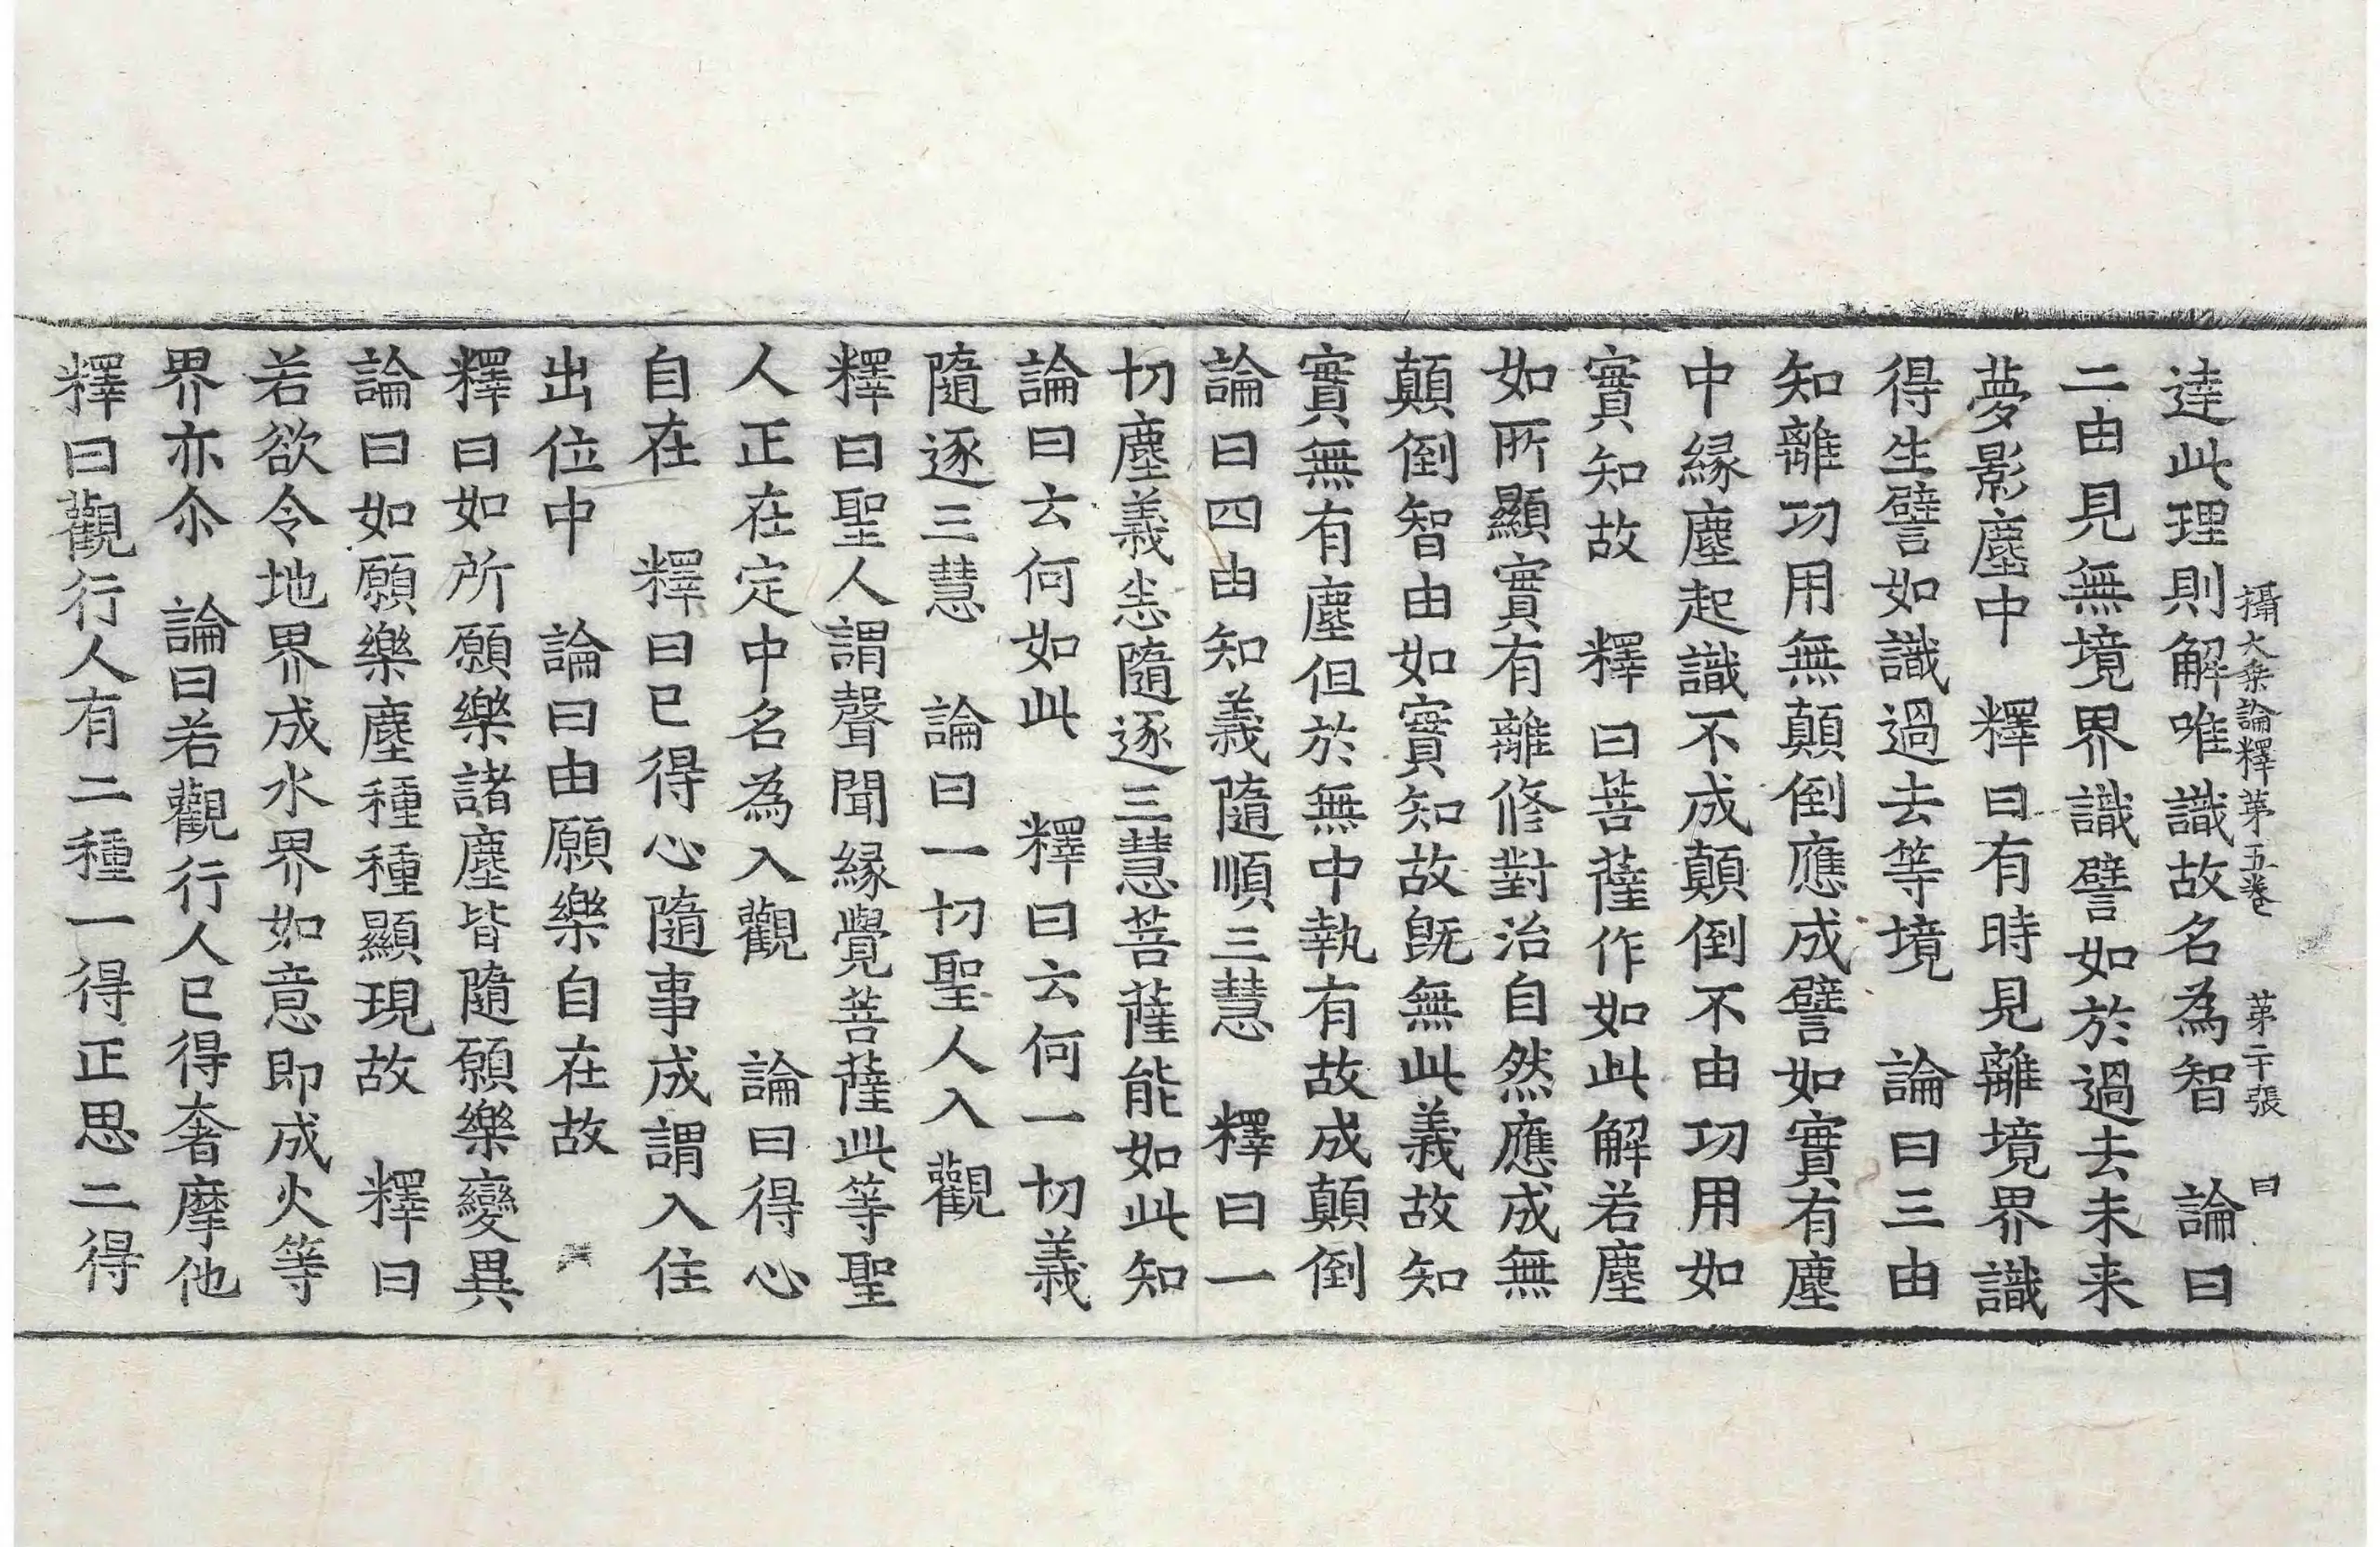 攝大乗論釋苐五卷　苐二十張　曰
達此理則解唯識故名為智　論曰
二由見無境界識譬如於過去未来
夢影塵中　釋曰有時見離境界識
得生譬如識過去等境　論曰三由
知離功用無顛倒應成譬如實有塵
中縁塵起識不成顛倒不由功用如
實知故　釋曰菩薩作如此解若塵
如所顯實有離修對治自然應成無
顛倒智由如實知故旣無此義故知
實無有塵但於無中執有故成顛倒
論曰四由知義隨順三慧　釋曰一
切塵義恙隨逐三慧菩薩能如此知
論曰云何如此　釋曰云何一切義
隨逐三慧　論曰一切聖人入觀
釋曰聖人謂聲聞縁覺菩薩此等聖
人正在定中名為入觀　論曰得心
自在　釋曰已得心隨事成謂入住
出位中　論曰由願樂自在故
釋曰如所願樂諸塵皆隨願樂變異
論曰如願樂塵種種顯現故　釋曰
若欲令地界成水界如意即成火等
界亦尒　論曰若觀行人已得奢摩他
釋曰觀行人有二種一得正思二得